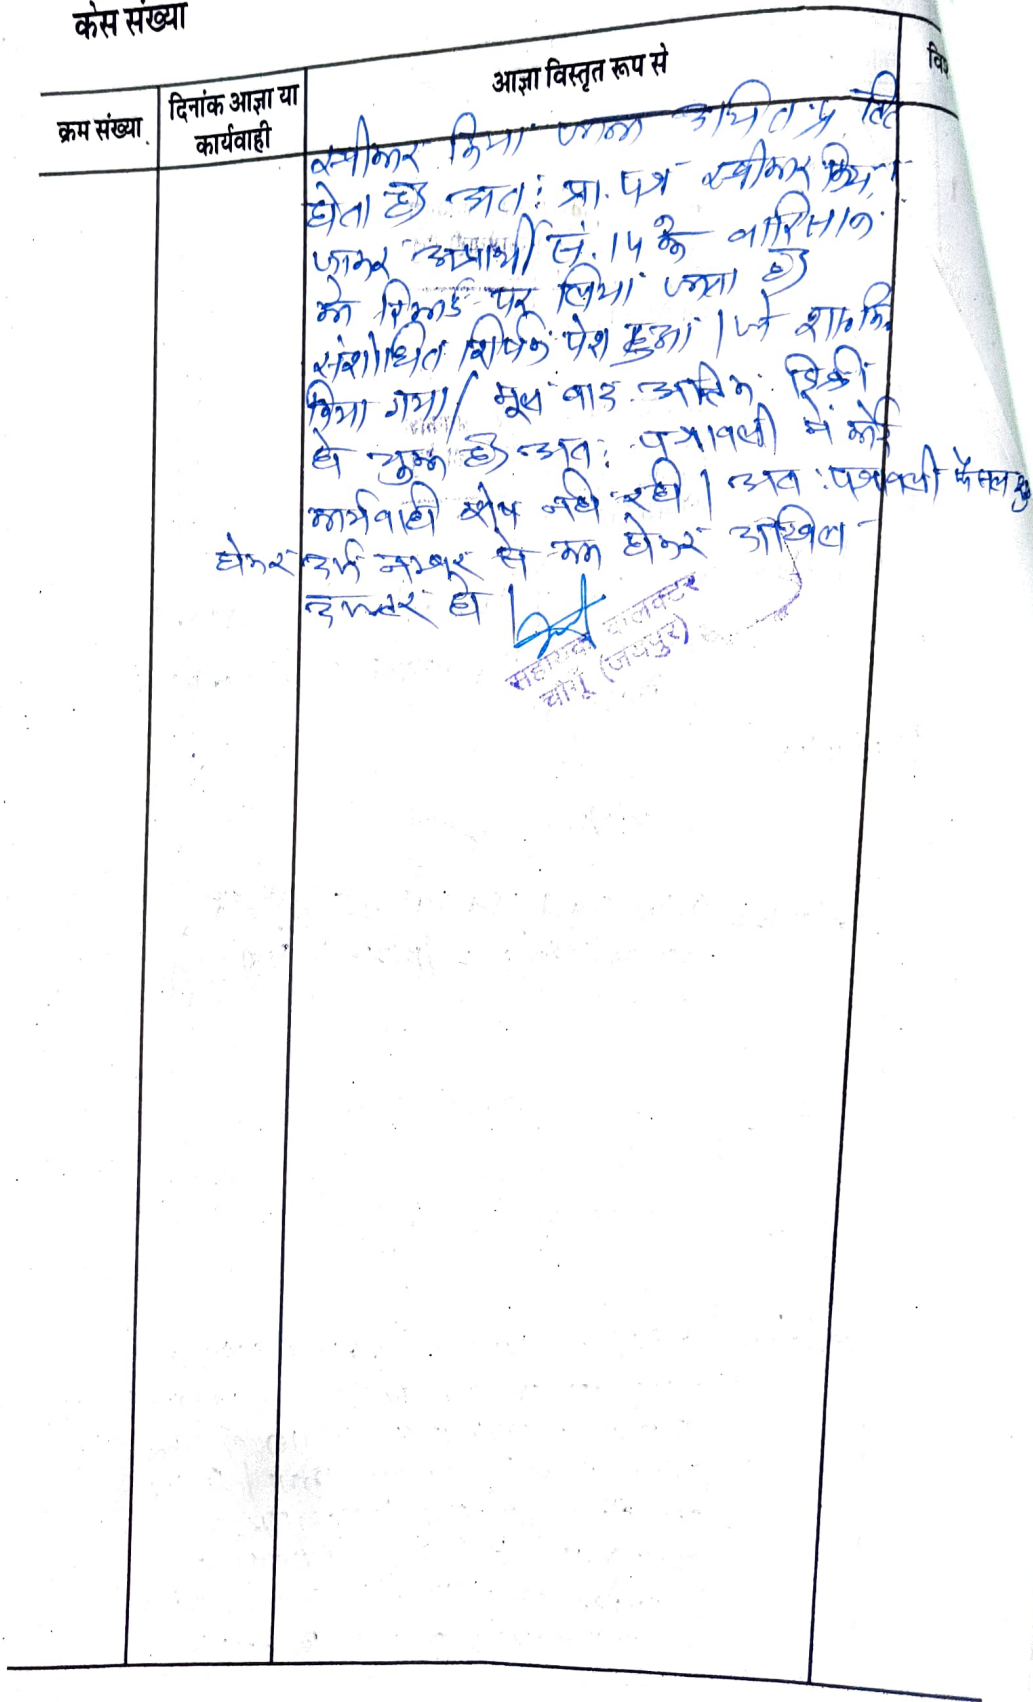 केस संख्या
क्रम संख्या
दिनांक आज्ञा या
कार्यवाही
आज्ञा विस्तृत रूप से
स्वीकार किया जाना उचित प्र
होता है अतः प्रा. पत्र स्वीकार किया
जाकर अप्रार्थी सं. 14 के वारिसान
को रिकार्ड पर लिया जाता है
संशोधित शीर्षक पेश हुआ। जो शा०मि०
किया गया। मूल वाद अंतिम डिक्री
हो चुका है अतः पत्रावली में कोई
कार्यवाही शेष नही रही। अतः पत्रावली फैसल शु
होकर दर्ज नम्बर से कम होकर दाखिल
दफ्तर हो।
सहायक कलक्टर
चौमूँ (जयपुर)